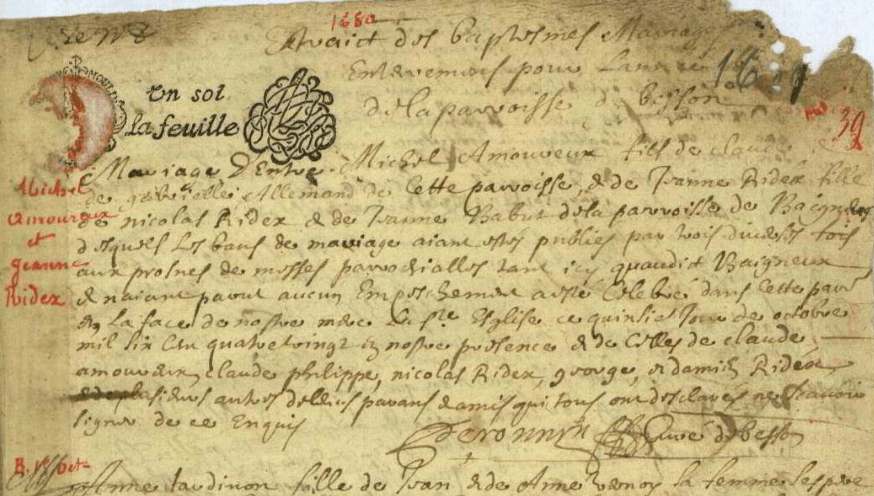 1680
Extraict des baptesmes Mariages
Enterremens pour Lannee 1680
de la parroisse de besson
Un sol
La feuille
39
Mariage D'Entre Michel Amoureux fils de claude
de gabrialle Allemand de Cette parroisse, & de Jeanne Ridex fille
de nicolas Ridex & de Jeanne Babut de la parroisse de Baigneux
desquels Les bans de mariage aiant estes publies par trois diverses fois
aux prosnes de messes parrochialles tant icy quaudit Baigneux
& naiant parut aucun Empeschement a esté Celebré dans Cette
En La face de nostre mere Ste Eglise ce quinsie Jour de octobre
mil six Cen quatre vingt En nostre presence & de Celles de claude
amoureux, claude philippe, nicolas Ridex, george, & damien Ridex
& de plusieurs autres de Leurs parans & amis qui tous ont desclares ne scavoir
signer de ce Enquis
curé de besson
Michel
amoureux
et
jeanne
Ridex
Anne fille de Jean & de Anne la femme